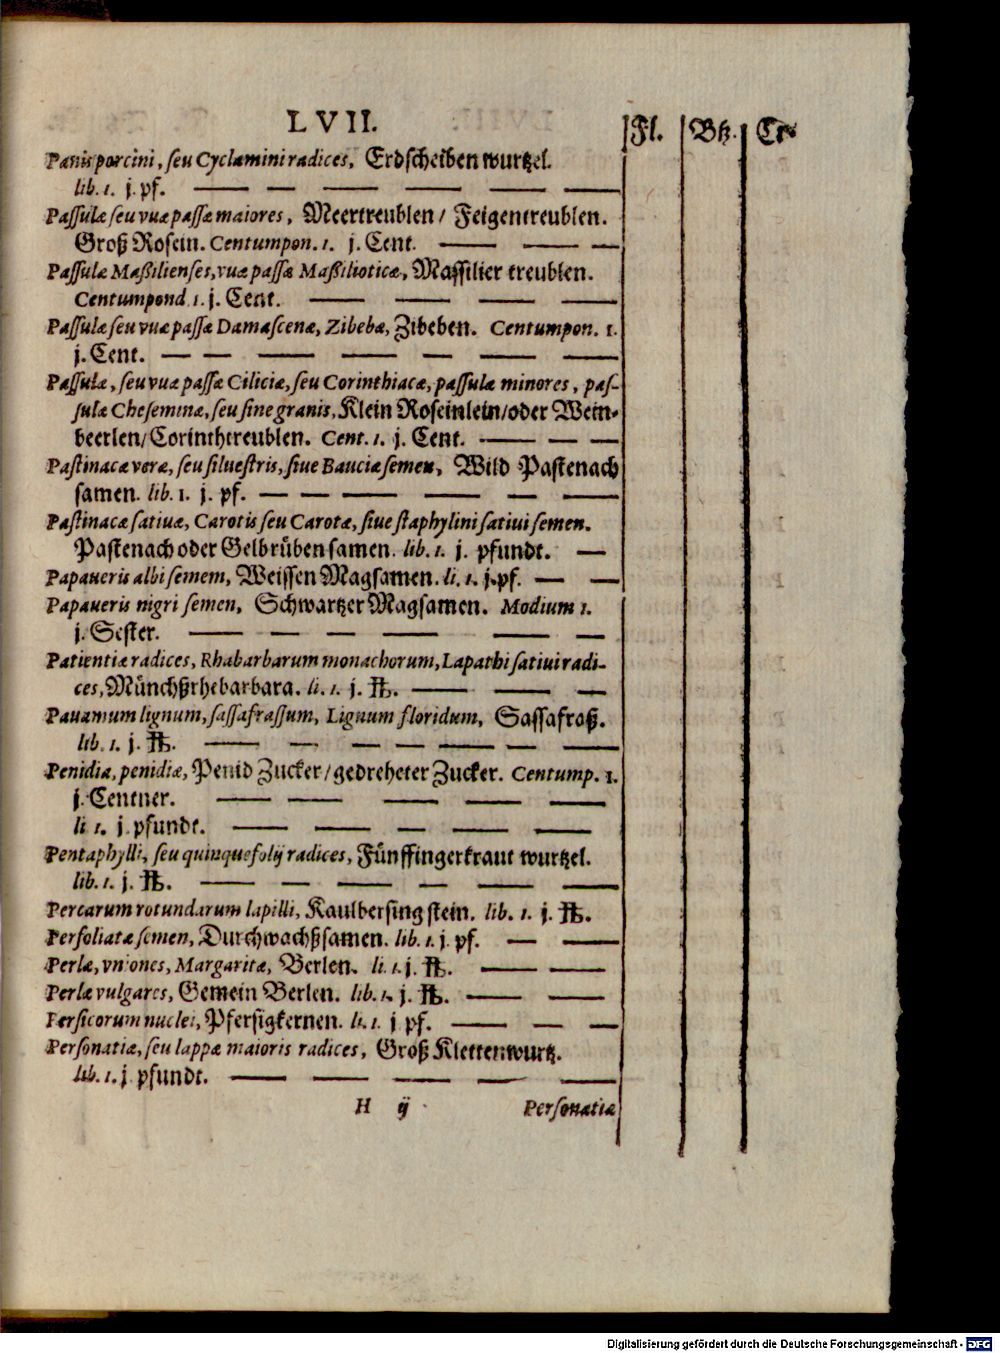 LVII.
Fl. Btz. Cr.
Panis porcini, seu Cyclamini radices, Erdscheiben wurtzel.
lib. 1. j. pf. — — — — — —
Passulæ seu vuæ passæ maiores, Meertreublen / Feigentreublen.
Groß Rosein. Centumpon. 1. j. Cent. — — —
Passulæ Maßilienses, vuæ passæ Maßilioticæ, Massilier treublen.
Centumpond. 1. j. Cent. — — — —
Passulæ seu vuæ passæ Damascenæ, Zibebæ, Zibeben. Centumpon. 1.
j. Cent. — — — — — — —
Passulæ, seu vuæ passæ Ciliciæ, seu Corinthiacæ, passulæ minores, pas-
sulæ Cheseminæ, seu sine granis, Klein Roseinlein / oder Wein-
beerlen / Corinthtreublen. Cent. 1. j. Cent. — — —
Pastinacæ veræ, seu siluestris, siue Bauciæ semen, Wild Pastenach
samen. lib. 1. j. pf. — — — — — —
Pastinacæ satiuæ, Carotis seu Carotæ, siue staphylini satiui semen.
Pastenach oder Gelbrüben samen. lib. 1. j. pfundt. —
Papaueris albi semem, Weissen Magsamen. li. 1. j. pf. — —
Papaueris nigri semen, Schwartzer Magsamen. Modium 1.
j. Sester. — — — — —
Patientiæ radices, Rhabarbarum monachorum, Lapathi satiui radi-
ces, Münchßrhebarbara. li. 1. j. ℔. — — —
Pauamum lignum, sassafrassum, Lignum floridum, Sassafraß.
lib. 1. j. ℔. — — — — — — —
Penidia, penidiæ, Penid Zucker / gedreheter Zucker. Centump. 1.
j. Centner. — — — — —
li 1. j. pfundt. — — — — —
Pentaphylli, seu quinquefolij radices, Fünffingerkraut wurtzel.
lib. 1. j. ℔. — — — — — —
Percarum rotundarum lapilli, Kaulbersing stein. lib. 1. j. ℔.
Perfoliatæ semen, Durchwachßsamen. lib. 1. j. pf. — —
Perlæ, vniones, Margaritæ, Berlen. li. 1. j. ℔. — —
Perlæ vulgares, Gemein Berlen. lib. 1. j. ℔. — —
Persicorum nuclei, Pfersigkernen. li. 1. j pf. — — —
Personatiæ, seu lappæ maioris radices, Groß Klettenwurtz.
lib. 1. j pfundt. — — — — —
H ij Personatiæ
Digitalisierung gefördert durch die Deutsche Forschungsgemeinschaft - DFG